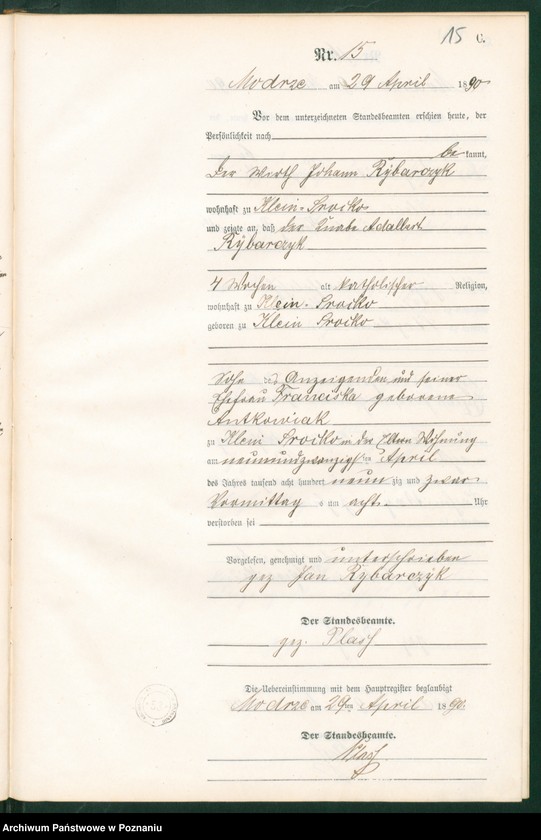 15 C.
Nr. 15
Modrze am 29 April 1890
Vor dem unterzeichneten Standesbeamten erschien heute, der
Persönlichkeit nach
be kannt,
Der Wirth Johann Rybarczyk
wohnhaft zu Klein-Srocko
und zeigte an, daß der Knabe Adalbert
Rybarczyk
4 Wochen alt katholischer Religion,
wohnhaft zu Klein-Srocko
geboren zu Klein Srocko
Sohn des Anzeigenden und seiner
Ehefrau Franciska geborene
Antkowiak
zu Klein Srocko in der Wohnung
am neunundzwanzigsten April
des Jahres tausend acht hundert neun zig und zwar
Vormittag s um acht Uhr
verstorben sei
Vorgelesen, genehmigt und unterschrieben
gez Jan Rybarczyk
Der Standesbeamte.
gez.
Die Uebereinstimmung mit dem Hauptregister beglaubigt
Modrze am 29ten April 1890.
Der Standesbeamte.
Archiwum Państwowe w Poznaniu